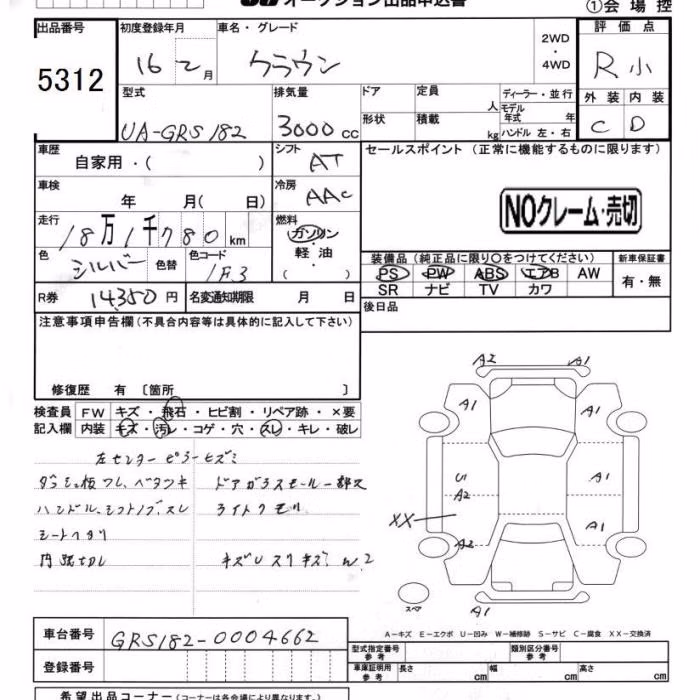 オークション出品申込書
①会場控
出品番号 初度登録年月 車名・グレード 2WD ・ 4WD 評価点
5312 16 2月 クラウン R小
型式 排気量 ドア 定員 人 ディーラー・並行 外装 内装
UA-GRS182 3000cc 形状 積載 kg モデル年式 年 C D
ハンドル 左・右
車歴 自家用・( ) シフト AT セールスポイント (正常に機能するものに限ります)
車検 年 月( 日) 冷房 AAC
NOクレーム・売切
走行 18万1千780km 燃料 ガソリン
軽油
( )
色 シルバー 色替 色コード 1F3
装備品 (純正品に限り○をつけてください) 新車保証書
PS PW ABS エアB AW 有・無
SR ナビ TV カワ
R券 14350円 名変通知期限 月 日 後日品
注意事項申告欄 (不具合内容等は具体的に記入して下さい)
修復歴 有 〔箇所 〕
検査員 FW キズ・飛石・ヒビ割・リペア跡・×要
記入欄 内装 キズ・汚レ・コゲ・穴・スレ・キレ・破レ
左センターピラーヒズミ
ダッシュ板ワレ、ベタツキ ドアガラスモール一部欠
ハンドル、シフトノブ、スレ ライトクモリ
シートヘタリ
内張切レ キズUスリキズ
A2 A1
A1 A1
U1 A2 A1
XX
A2 A1
スペア A1
A-キズ E-エクボ U-凹み W-補修跡 S-サビ C-腐食 XX-交換済
車台番号 GRS182-0004662
型式指定番号 参考 類別区分番号 参考
登録番号 車庫証明用 参考 長さ cm 幅 cm 高さ cm
希望出品コーナー (コーナーは各会場により異なります)